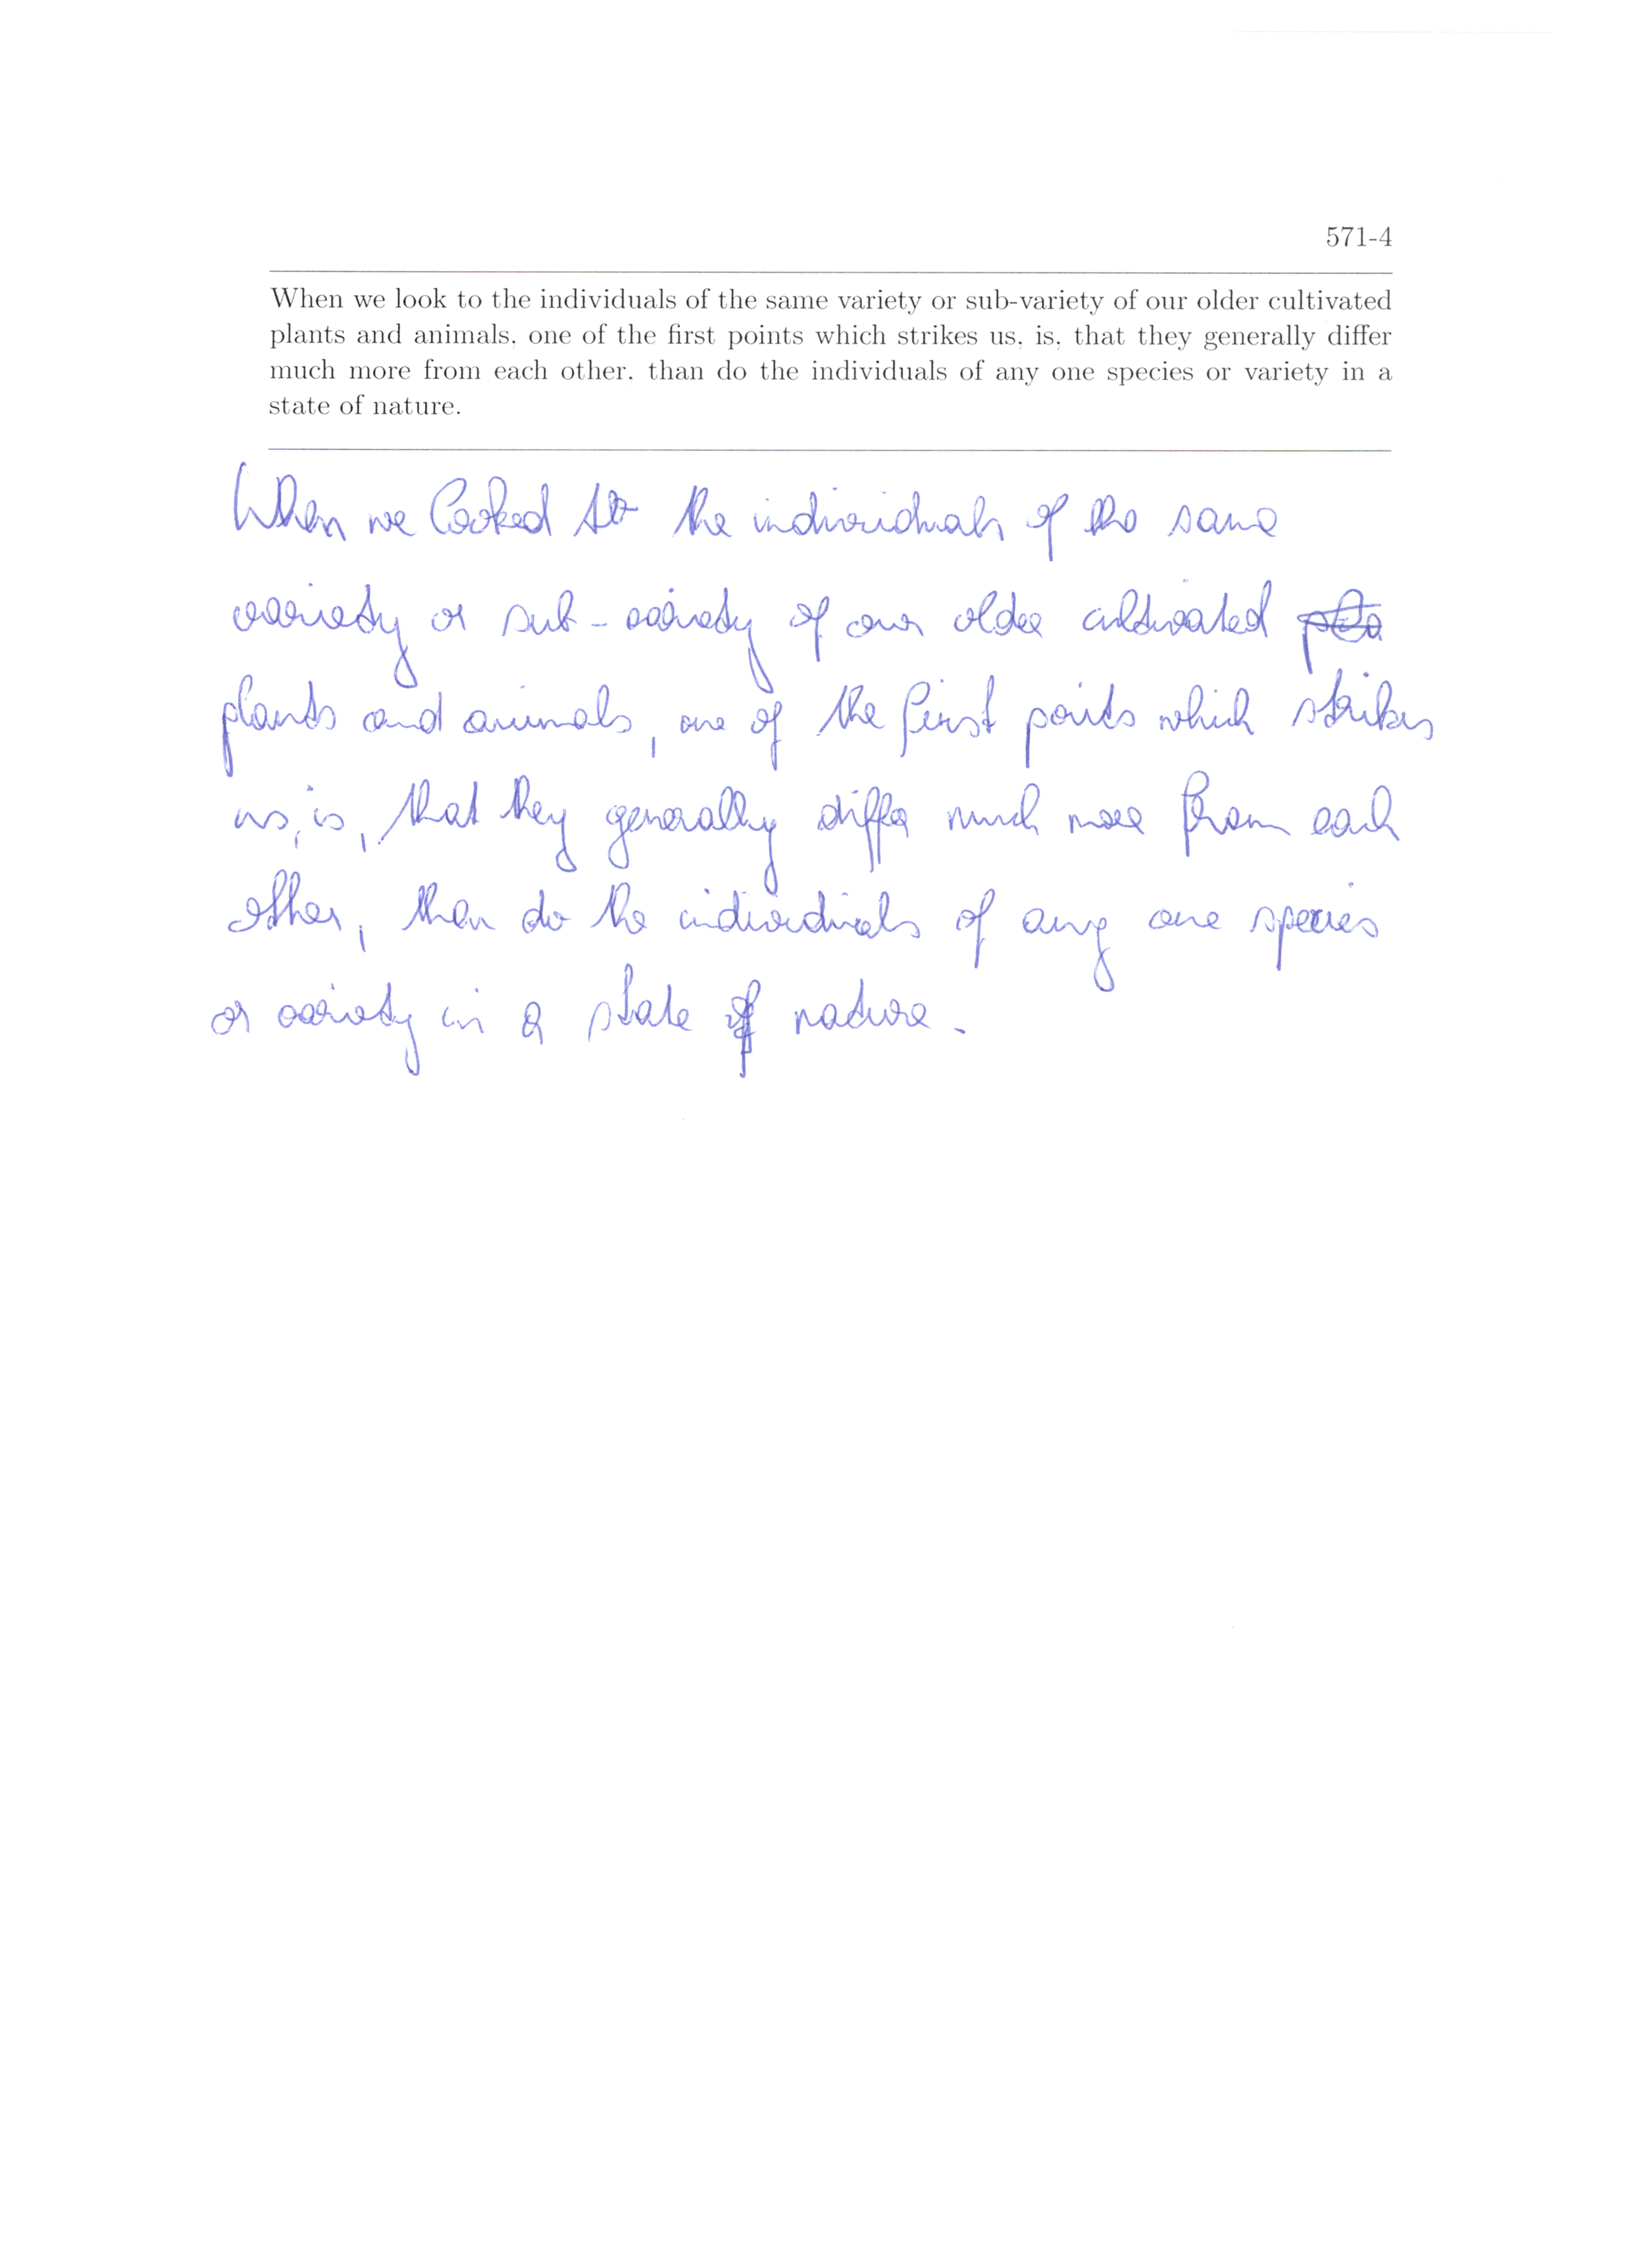 571-4
When we look to the individuals of the same variety or sub-variety of our older cultivated
plants and animals, one of the first points which strikes us, is, that they generally differ
much more from each other, than do the individuals of any one species or variety in a
state of nature.
When we looked to the individuals of the same
variety or sub-variety of our older cultivated
plants and animals, one of the first points which strikes
us, is, that they generally differ much more from each
other, than do the individuals of any one species
or variety in a state of nature.